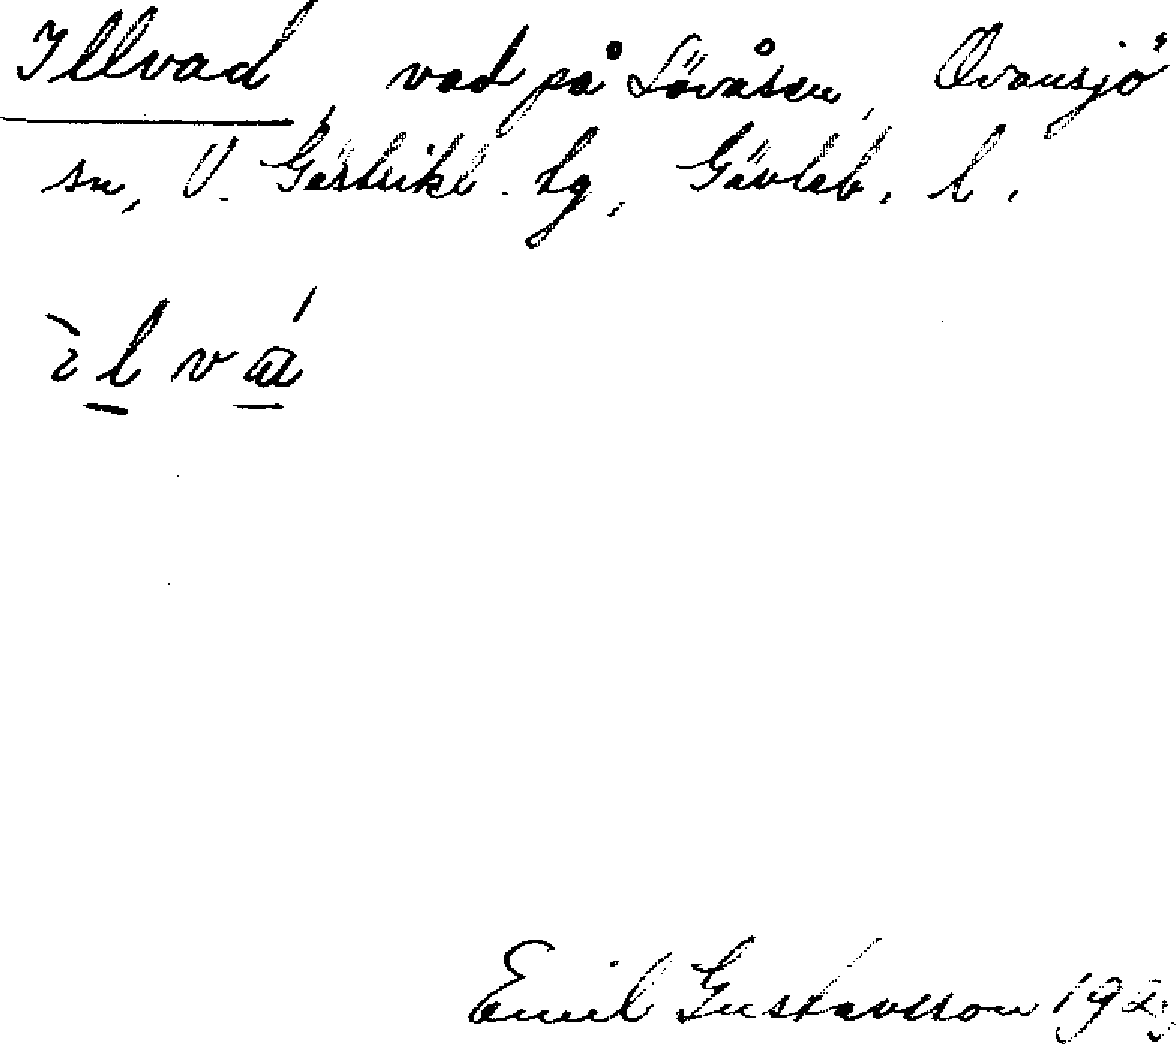 Illvad, vad på Lövåsen, Ovansjö
sn, V. Gästrikl. tg, Gävleb. l.
ìl vá
Emil Gustavsson